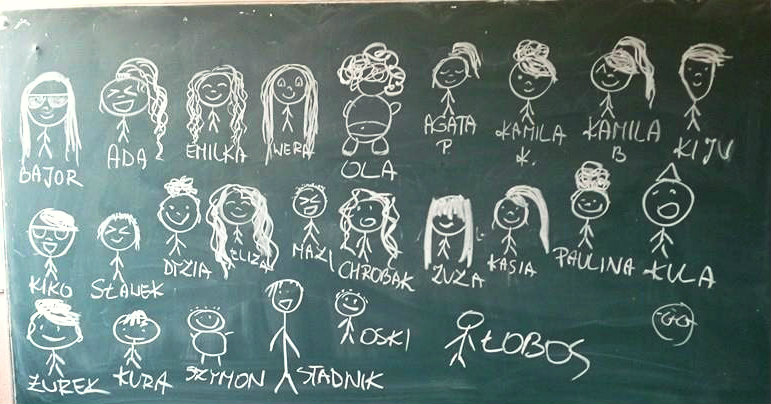 BAJOR
ADA
EMILKA
WERA
OLA
AGATA P.
KAMILA K.
KAMILA B
KIJU
KIKO
SŁAWEK
DYZIA
ELIZA
MAŁI
CHROBAK
ZUZA
KASIA
PAULINA
KULA
ŻUREK
KURA
SZYMON
STADNIK
OSKI
ŁOBOS